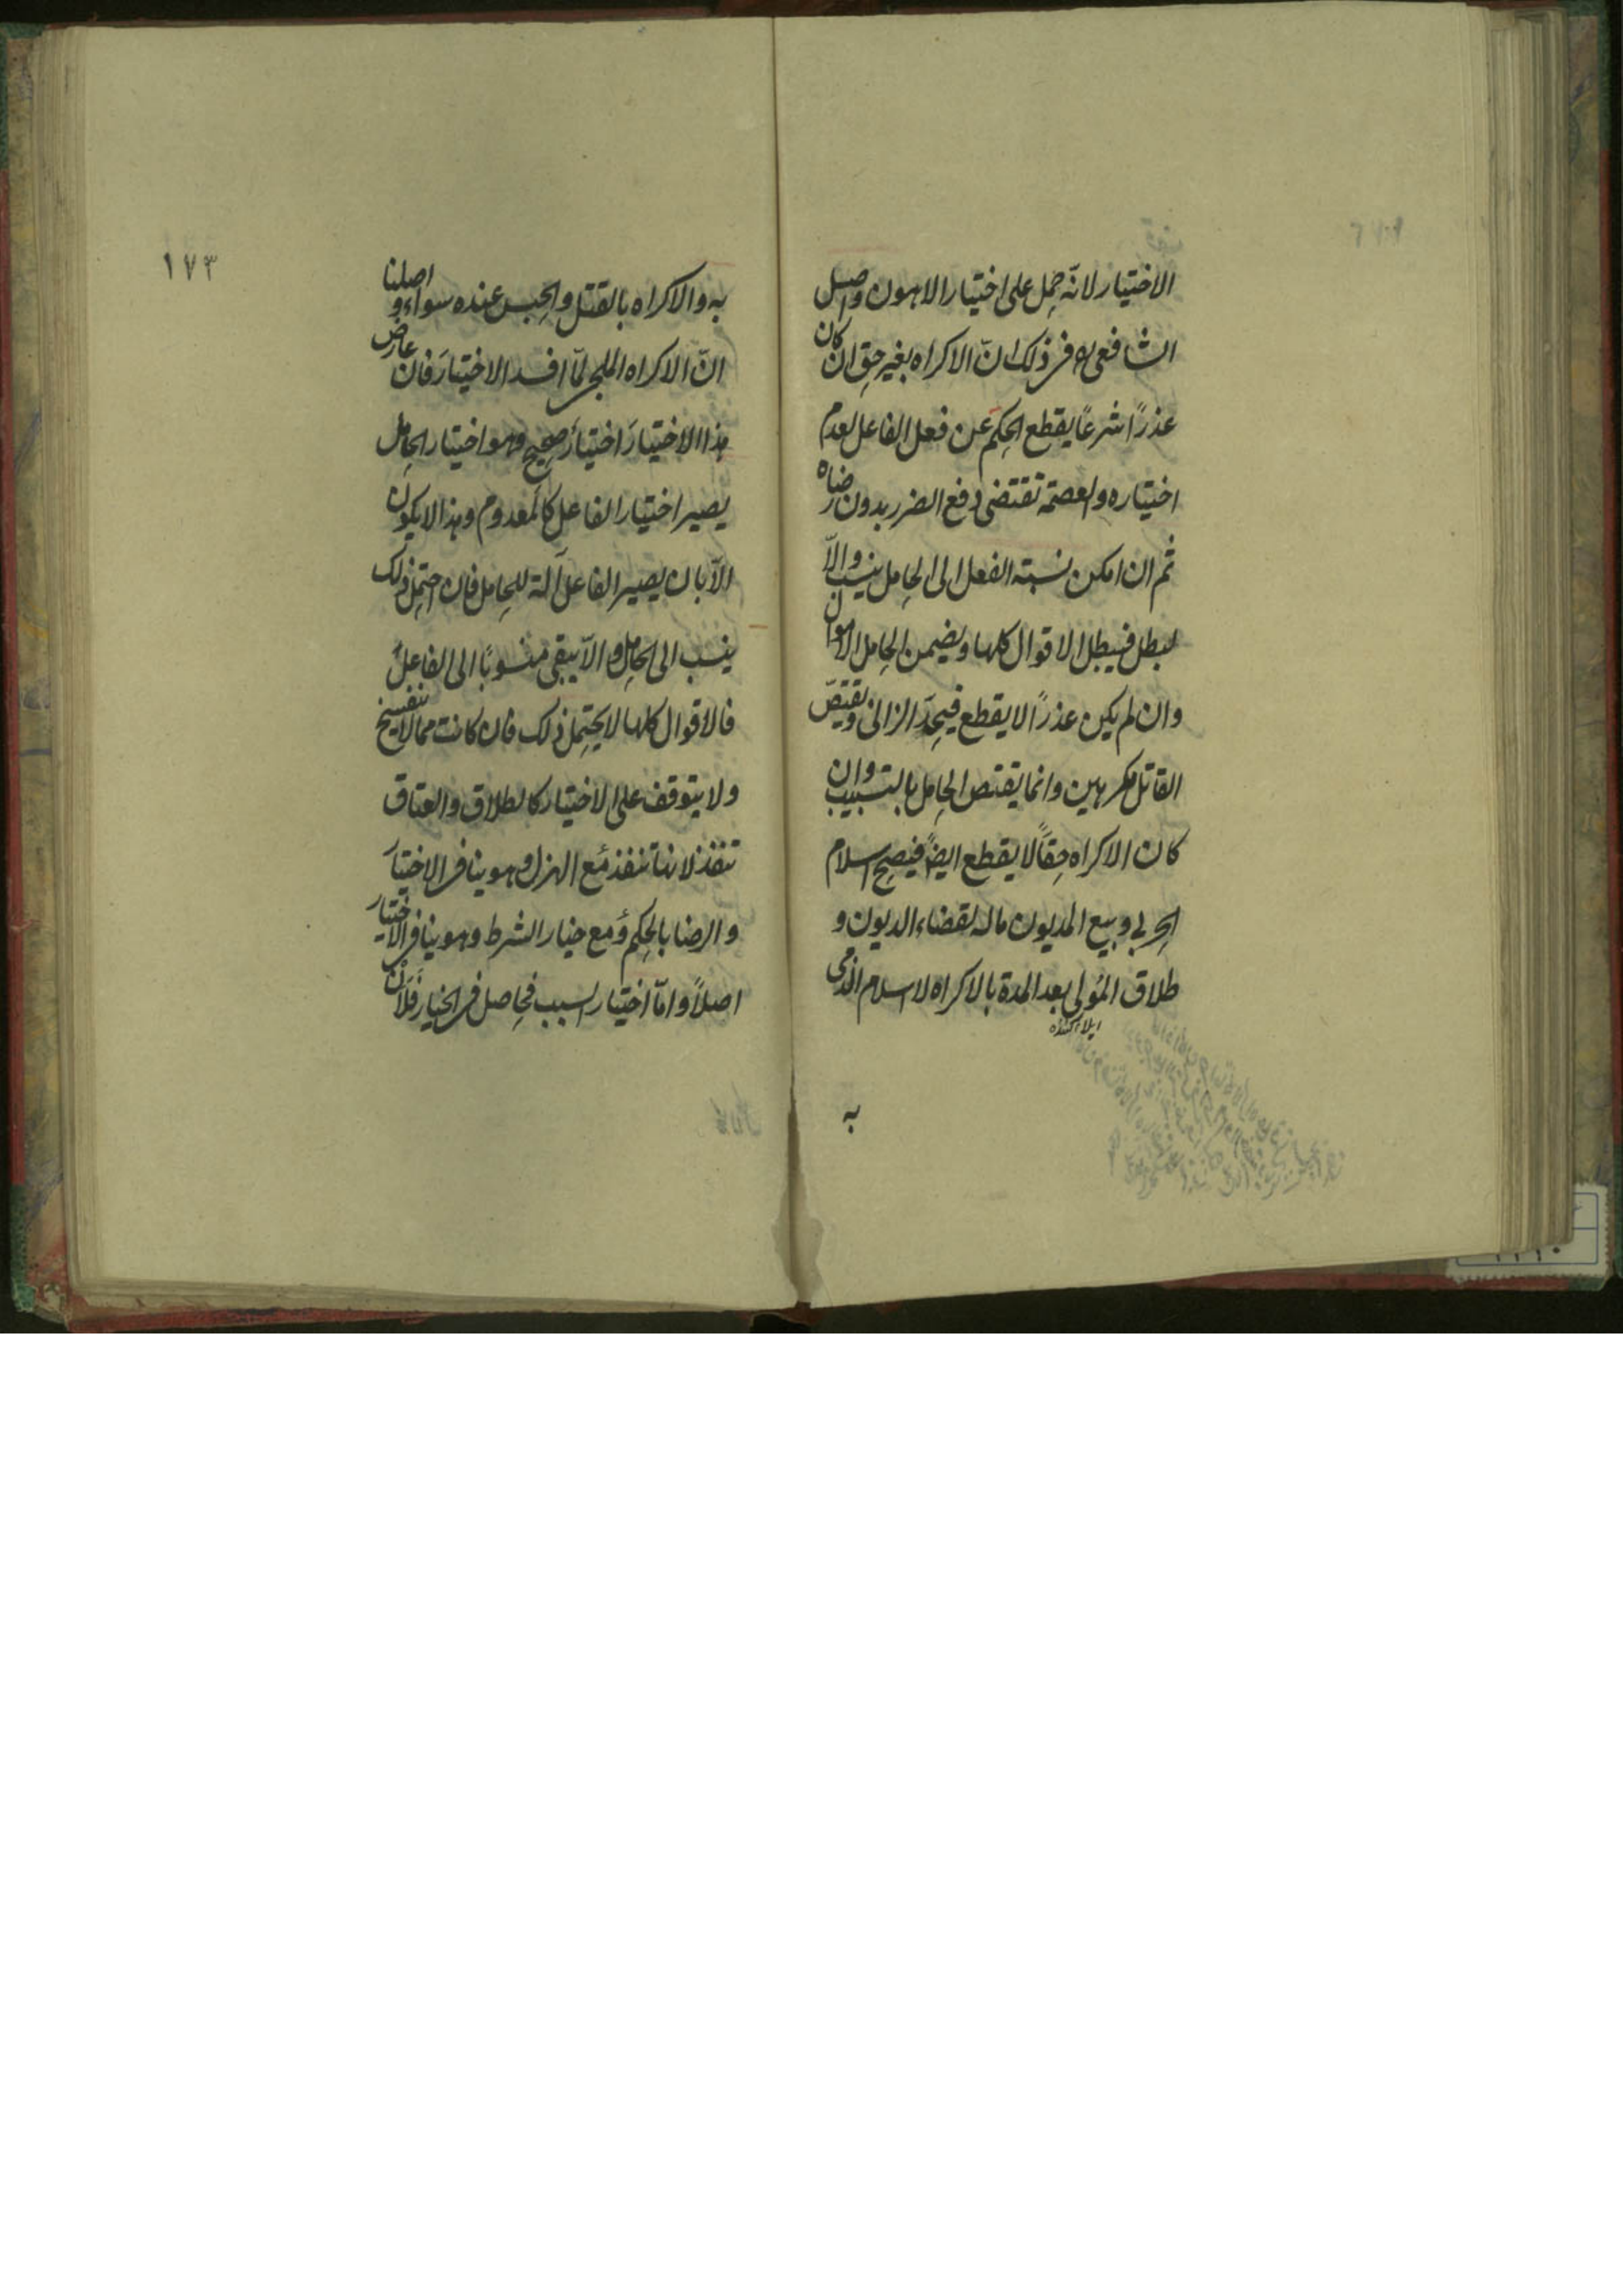 الاختيار لانّه حمل على اختيار الاهون واصل
الشافعى ره فى ذلك انّ الاكراه بغير حق ان كان
عذرًا شرعًا يقطع الحكم عن فعل الفاعل لعدم
اختياره والعصمة تقتضى دفع الضرر بدون رضاه
ثم ان امكن نسبة الفعل الى الحامل ينسب والّا
لبطل فيبطل الاقوال كلها ويضمن الحامل الاموال
وان لم يكن عذرًا لا يقطع فيحدّ الزانى ويقتصّ
القاتل مكرهين وانما يقتص الحامل بالتسبيب وان
كان الاكراه حقًّا لا يقطع ايضً فيصح اسلام
الحربى وبيع المديون ماله لقضاء الديون و
طلاق المولى بعد المدة بالاكراه لا اسلام الذمى
ايلا كننده
به
١٧٣
به والاكراه بالقتل والحبس عنده سواء و اصلنا
انّ الاكراه الملجى لمّا افسد الاختيار فان عارض
هذا الاختيار اختيار صحيح وهو اختيار الحامل
يصير اختيار الفاعل كالمعدوم وهذا لا يكون
الّا بان يصير الفاعل آلة للحامل فان احتمل ذلك
ينسب الى الحامل والّا يبقى منسوبًا الى الفاعل
فالاقوال كلها لا يحتمل ذلك فان كانت مما لا ينفسخ
ولا يتوقف على الاختيار كالطلاق والعتاق
تنفذ لانها تنفذ مع الهزل وهو ينافى الاختيار
والرضا بالحكم ومع خيار الشرط وهو ينافى الاختيار
اصلاً وامّا اختيار السبب فحاصل فى الخيار فلان